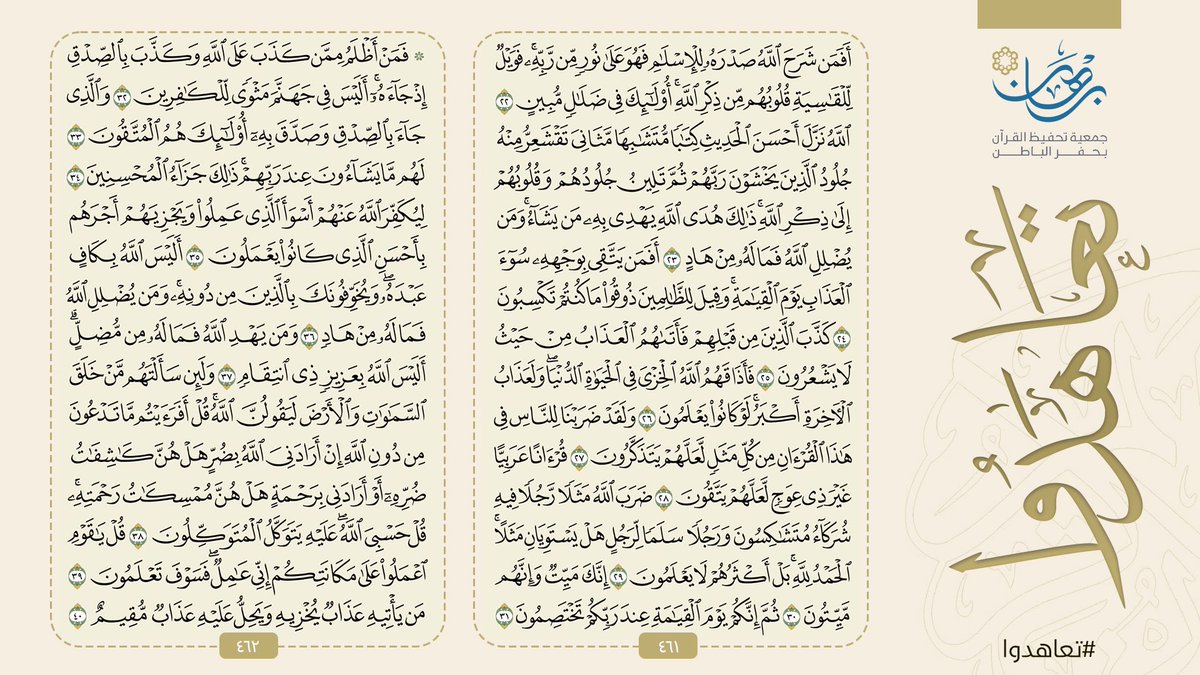 أَفَمَن شَرَحَ ٱللَّهُ صَدْرَهُۥ لِلْإِسْلَٰمِ فَهُوَ عَلَىٰ نُورٍ مِّن رَّبِّهِۦۚ فَوَيْلٌ
لِّلْقَٰسِيَةِ قُلُوبُهُم مِّن ذِكْرِ ٱللَّهِۚ أُو۟لَٰٓئِكَ فِى ضَلَٰلٍ مُّبِينٍ ٢٢
ٱللَّهُ نَزَّلَ أَحْسَنَ ٱلْحَدِيثِ كِتَٰبًا مُّتَشَٰبِهًا مَّثَانِىَ تَقْشَعِرُّ مِنْهُ
جُلُودُ ٱلَّذِينَ يَخْشَوْنَ رَبَّهُمْ ثُمَّ تَلِينُ جُلُودُهُمْ وَقُلُوبُهُمْ
إِلَىٰ ذِكْرِ ٱللَّهِۚ ذَٰلِكَ هُدَى ٱللَّهِ يَهْدِى بِهِۦ مَن يَشَآءُۚ وَمَن
يُضْلِلِ ٱللَّهُ فَمَا لَهُۥ مِنْ هَادٍ ٢٣ أَفَمَن يَتَّقِى بِوَجْهِهِۦ سُوٓءَ
ٱلْعَذَابِ يَوْمَ ٱلْقِيَٰمَةِۚ وَقِيلَ لِلظَّٰلِمِينَ ذُوقُوا۟ مَا كُنتُمْ تَكْسِبُونَ
٢٤ كَذَّبَ ٱلَّذِينَ مِن قَبْلِهِمْ فَأَتَىٰهُمُ ٱلْعَذَابُ مِنْ حَيْثُ
لَا يَشْعُرُونَ ٢٥ فَأَذَاقَهُمُ ٱللَّهُ ٱلْخِزْىَ فِى ٱلْحَيَوٰةِ ٱلدُّنْيَاۖ وَلَعَذَابُ
ٱلْءَاخِرَةِ أَكْبَرُۚ لَوْ كَانُوا۟ يَعْلَمُونَ ٢٦ وَلَقَدْ ضَرَبْنَا لِلنَّاسِ فِى
هَٰذَا ٱلْقُرْءَانِ مِن كُلِّ مَثَلٍ لَّعَلَّهُمْ يَتَذَكَّرُونَ ٢٧ قُرْءَانًا عَرَبِيًّا
غَيْرَ ذِى عِوَجٍ لَّعَلَّهُمْ يَتَّقُونَ ٢٨ ضَرَبَ ٱللَّهُ مَثَلًا رَّجُلًا فِيهِ
شُرَكَآءُ مُتَشَٰكِسُونَ وَرَجُلًا سَلَمًا لِّرَجُلٍ هَلْ يَسْتَوِيَانِ مَثَلًاۚ
ٱلْحَمْدُ لِلَّهِۚ بَلْ أَكْثَرُهُمْ لَا يَعْلَمُونَ ٢٩ إِنَّكَ مَيِّتٌ وَإِنَّهُم
مَّيِّتُونَ ٣٠ ثُمَّ إِنَّكُمْ يَوْمَ ٱلْقِيَٰمَةِ عِندَ رَبِّكُمْ تَخْتَصِمُونَ ٣١
٤٦١
۞ فَمَنْ أَظْلَمُ مِمَّن كَذَبَ عَلَى ٱللَّهِ وَكَذَّبَ بِٱلصِّدْقِ
إِذْ جَآءَهُۥٓۚ أَلَيْسَ فِى جَهَنَّمَ مَثْوًى لِّلْكَٰفِرِينَ ٣٢ وَٱلَّذِى
جَآءَ بِٱلصِّدْقِ وَصَدَّقَ بِهِۦٓ أُو۟لَٰٓئِكَ هُمُ ٱلْمُتَّقُونَ ٣٣
لَهُم مَّا يَشَآءُونَ عِندَ رَبِّهِمْۚ ذَٰلِكَ جَزَآءُ ٱلْمُحْسِنِينَ ٣٤
لِيُكَفِّرَ ٱللَّهُ عَنْهُمْ أَسْوَأَ ٱلَّذِى عَمِلُوا۟ وَيَجْزِيَهُمْ أَجْرَهُم
بِأَحْسَنِ ٱلَّذِى كَانُوا۟ يَعْمَلُونَ ٣٥ أَلَيْسَ ٱللَّهُ بِكَافٍ
عَبْدَهُۥۖ وَيُخَوِّفُونَكَ بِٱلَّذِينَ مِن دُونِهِۦۚ وَمَن يُضْلِلِ ٱللَّهُ
فَمَا لَهُۥ مِنْ هَادٍ ٣٦ وَمَن يَهْدِ ٱللَّهُ فَمَا لَهُۥ مِن مُّضِلٍّۗ
أَلَيْسَ ٱللَّهُ بِعَزِيزٍ ذِى ٱنتِقَامٍ ٣٧ وَلَئِن سَأَلْتَهُم مَّنْ خَلَقَ
ٱلسَّمَٰوَٰتِ وَٱلْأَرْضَ لَيَقُولُنَّ ٱللَّهُۚ قُلْ أَفَرَءَيْتُم مَّا تَدْعُونَ
مِن دُونِ ٱللَّهِ إِنْ أَرَادَنِىَ ٱللَّهُ بِضُرٍّ هَلْ هُنَّ كَٰشِفَٰتُ
ضُرِّهِۦٓ أَوْ أَرَادَنِى بِرَحْمَةٍ هَلْ هُنَّ مُمْسِكَٰتُ رَحْمَتِهِۦۚ
قُلْ حَسْبِىَ ٱللَّهُۖ عَلَيْهِ يَتَوَكَّلُ ٱلْمُتَوَكِّلُونَ ٣٨ قُلْ يَٰقَوْمِ
ٱعْمَلُوا۟ عَلَىٰ مَكَانَتِكُمْ إِنِّى عَٰمِلٌۖ فَسَوْفَ تَعْلَمُونَ ٣٩
مَن يَأْتِيهِ عَذَابٌ يُخْزِيهِ وَيَحِلُّ عَلَيْهِ عَذَابٌ مُّقِيمٌ ٤٠
٤٦٢
برهان
جمعية تحفيظ القرآن
بحفر الباطن
تعاهدوا
#تعاهدوا